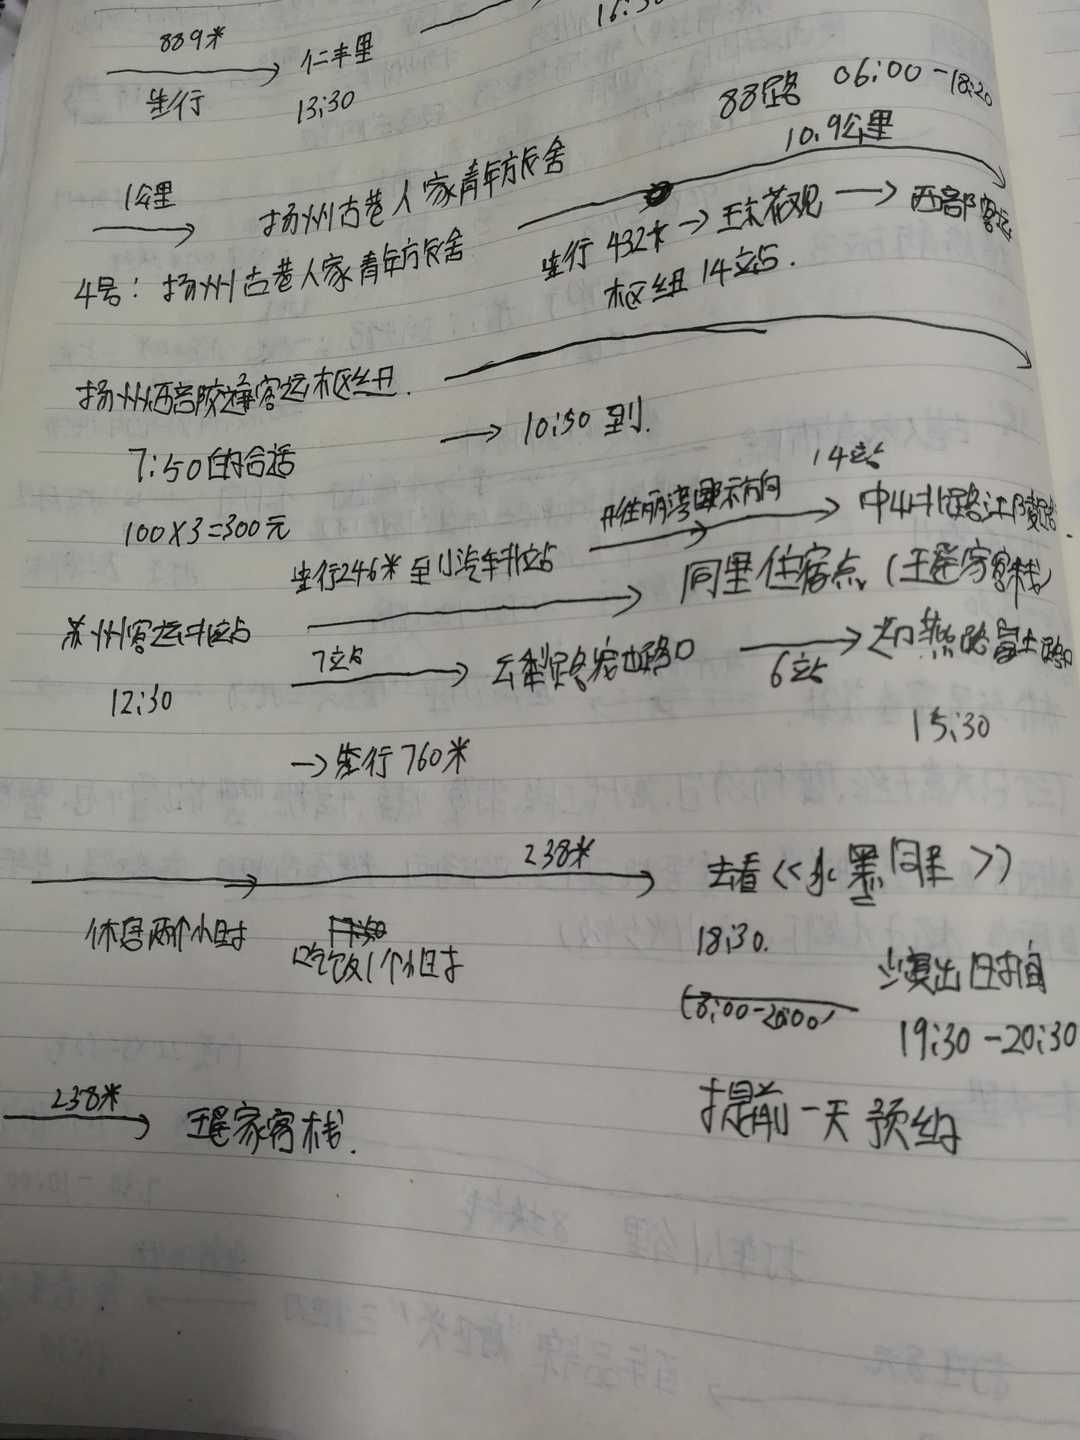 889米
仁丰里
16:30
步行
13:30
88路 06:00-18:20
10.9公里
1公里
扬州古巷人家青年旅舍
步行432米→琼花观→西部客运
枢纽 14站.
4号:扬州古巷人家青年旅舍
扬州西部交通客运枢纽.
7:50的合适
→10:50到.
100×3=300元
14站
步行246米至小汽车北站
同里住宿点(王琞家客栈)
苏州客运北站
7站
云梨路
6站
12:30
15:30
→步行760米
238米
去看<<水墨同里>>
休息两个小时
吃饭1个小时
18:30.
(18:00-20:00)
演出时间
19:30-20:30
238米
家客栈.
提前一天预约